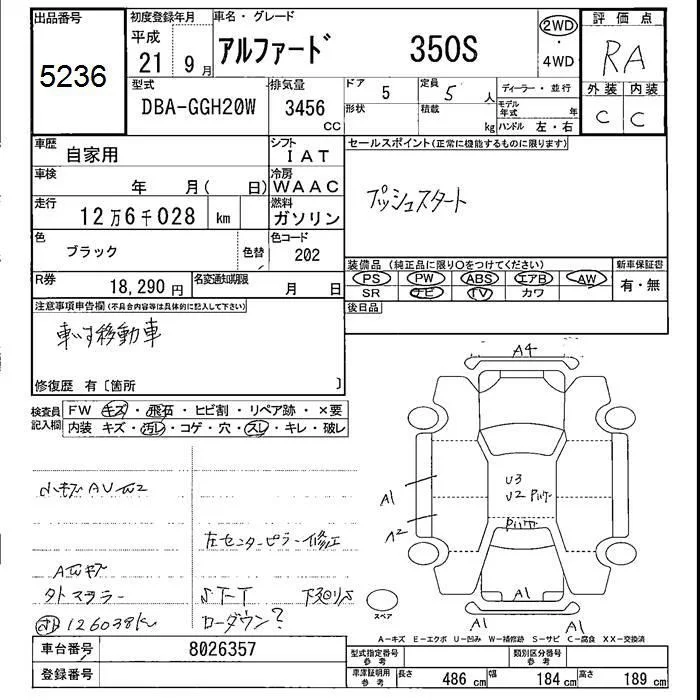 出品番号
5236
初度登録年月
平成
21 9月
車名・グレード
アルファード 350S
2WD
・
4WD
評価点
RA
外装 内装
C C
型式
DBA-GGH20W
排気量
3456 CC
ドア 5
形状
定員 5 人
積載 kg
ディーラー・並行
モデル年式 年
ハンドル 左・右
車歴
自家用
シフト
IAT
車検
年 月( 日)
冷房
WAAC
走行
12万6千028 km
燃料
ガソリン
色
ブラック
色替
色コード
202
R券
18,290円
名変通知期限
月 日
セールスポイント(正常に機能するものに限ります)
プッシュスタート
装備品(純正品に限り○をつけてください)
PS PW ABS エアB AW
SR ナビ TV カワ
新車保証書
有・無
後日品
注意事項申告欄(不具合内容等は具体的に記入して下さい)
車いす移動車
修復歴 有〔箇所 〕
検査員記入欄
FW キズ・飛石・ヒビ割・リペア跡・×要
内装 キズ・汚レ・コゲ・穴・スレ・キレ・破レ
左センターピラー修正
ローダウン?
126038k
A4
A1
U3
U2
A1
A1
A1
スペア
A-キズ E-エクボ U-凹み W-補修跡 S-サビ C-腐食 XX-交換済
車台番号 8026357
登録番号
型式指定番号 参考
類別区分番号 参考
車庫証明用 参考
長さ 486 cm 幅 184 cm 高さ 189 cm